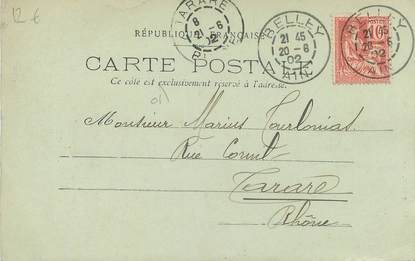 12 €
TARARE
8
21-6
02
BELLEY
21 45
20-6
02
AIN
BELLEY
21 45
20-6
02
AIN
RÉPUBLIQUE FRANÇAISE
CARTE POSTA
Ce côté est exclusivement réservé à l'adresse.
Monsieur Marius
Rue
Tarare
Rhône